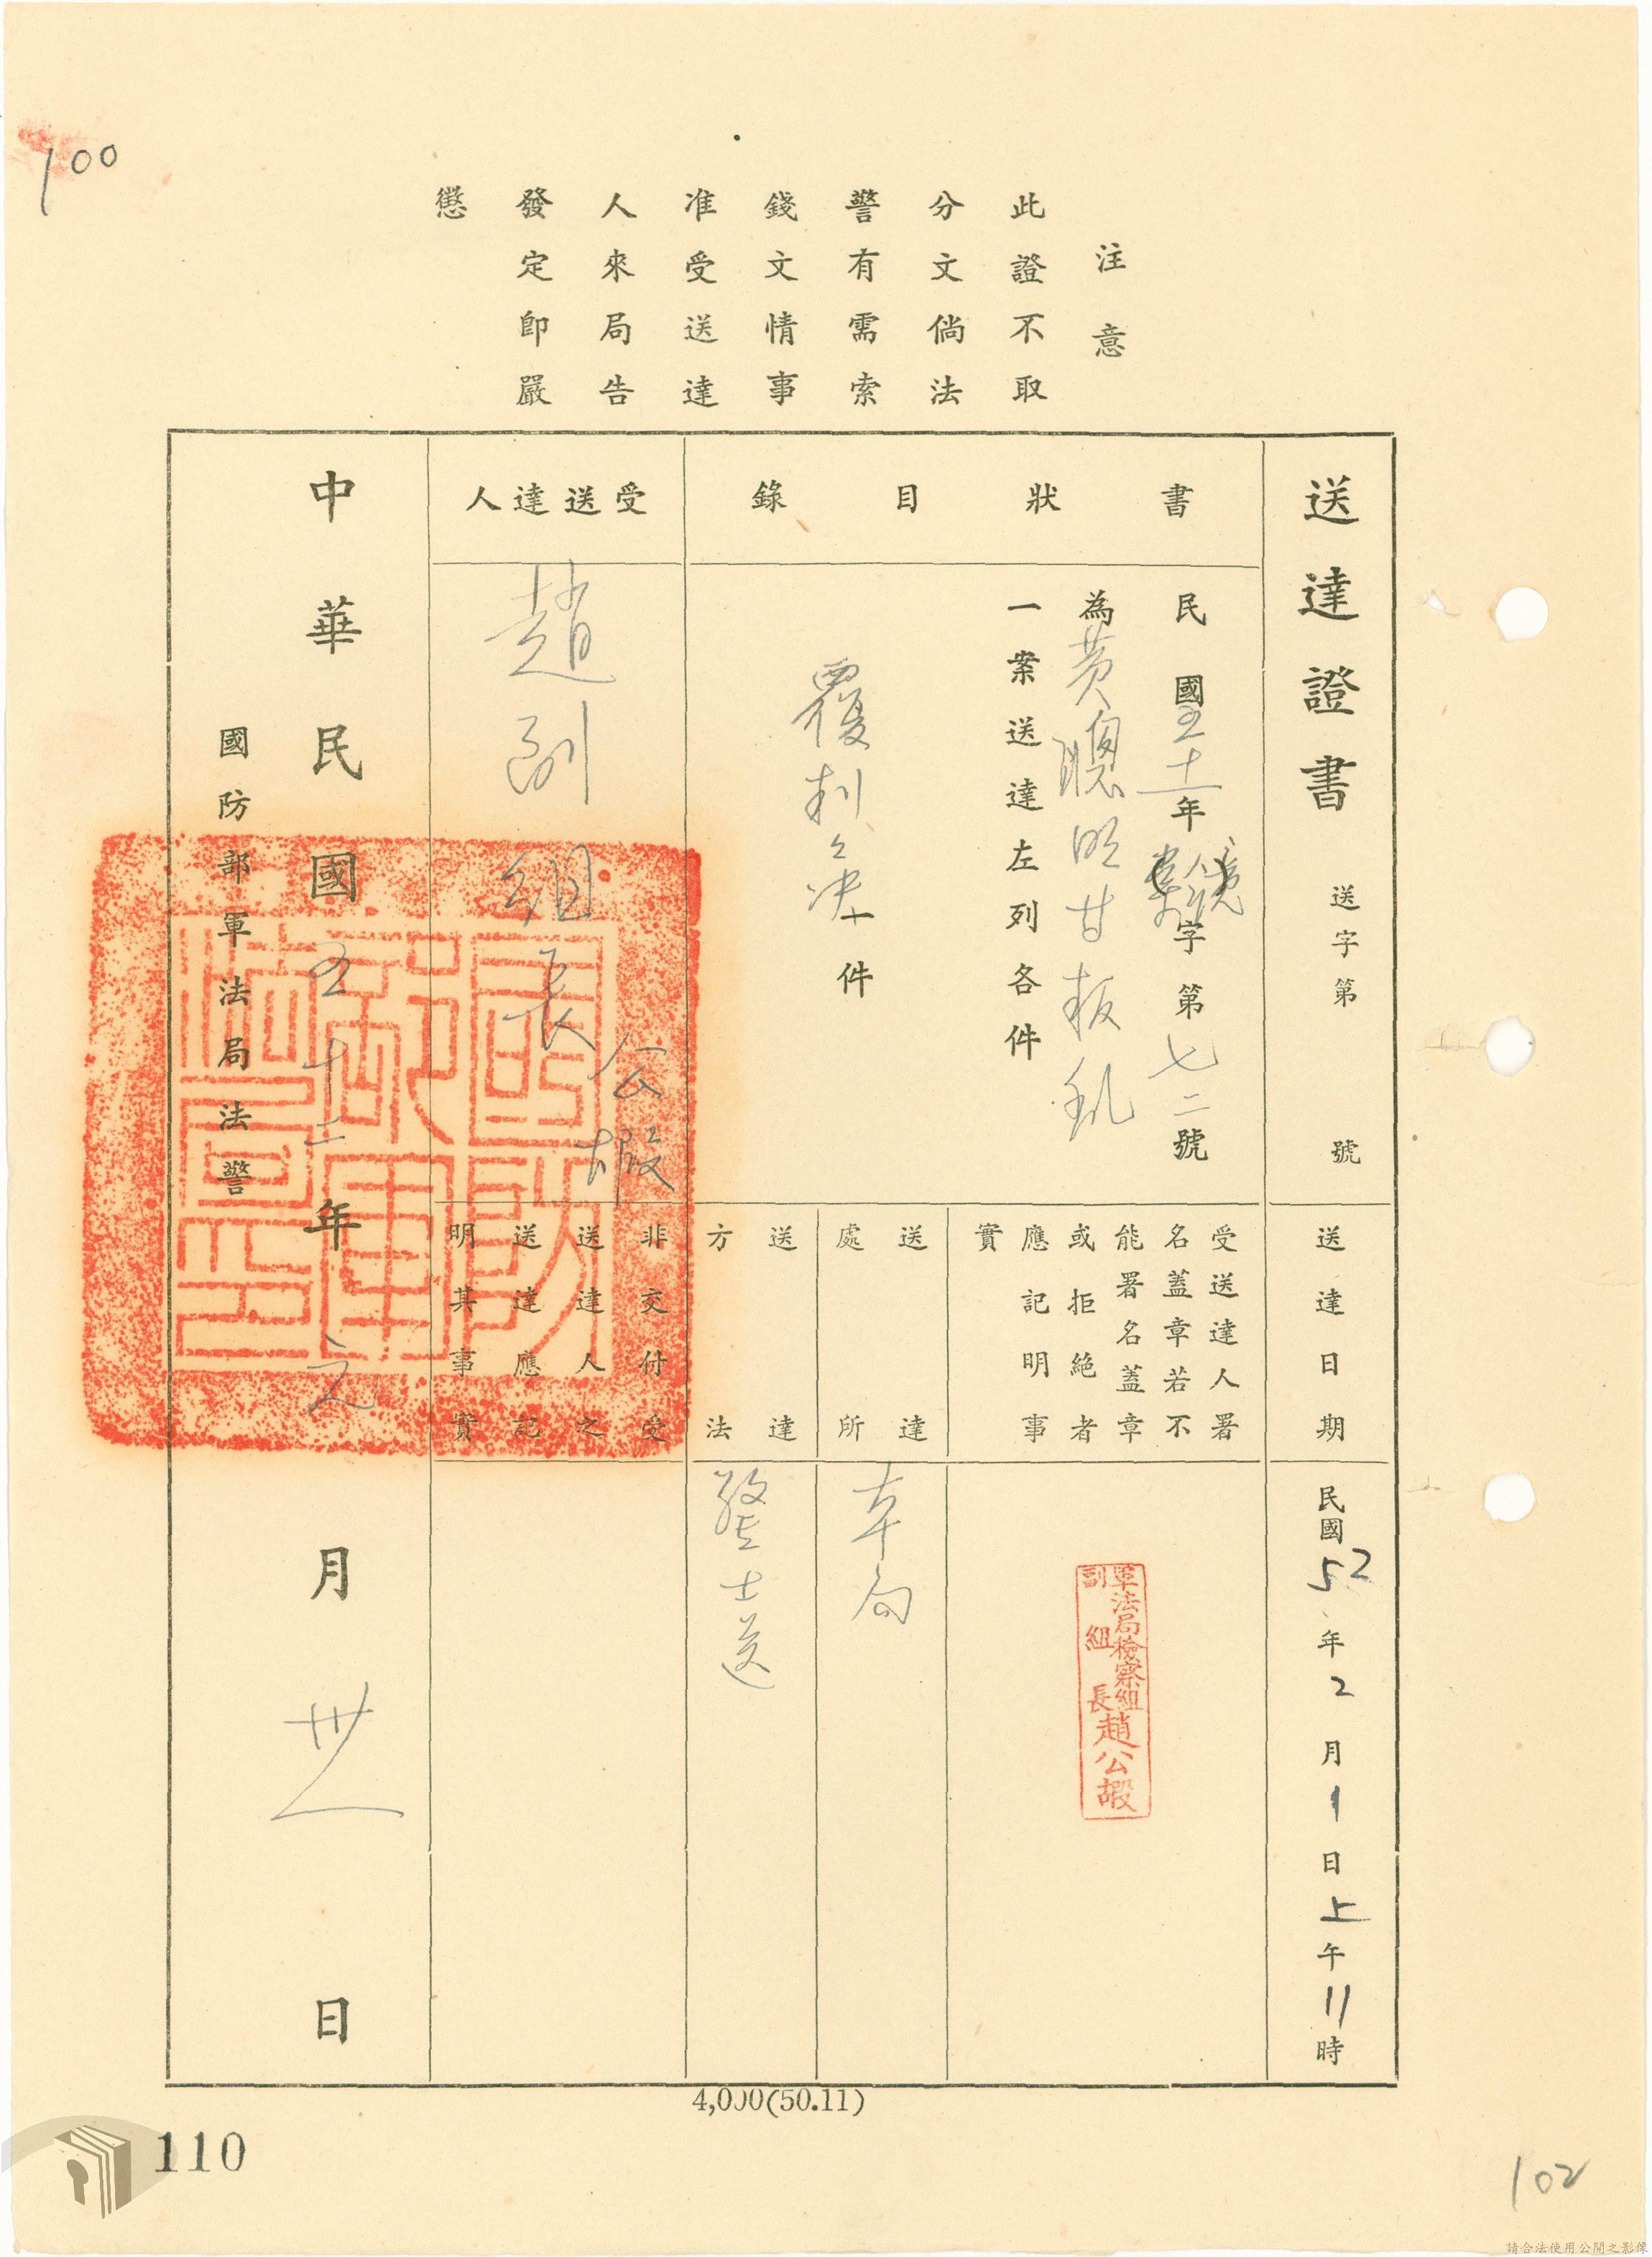 100
注意
此證不取
分文倘法
警有需索
錢文情事
准受送達
人來局告
發定即嚴
懲
送達證書 送字第 號
書狀目錄
民國五十一年 字第七二號
為黃聰明甘叛亂
一案送達左列各件
覆判判決一件
受送達人
趙副組長公嘏
中華民國五十二年元月卅一日
國防部軍法局法警
送達日期
民國52年2月1日上午11時
受送達人署
名蓋章若不
能署名蓋章
或拒絕者
應記明事
實
軍法局檢察組
副組長趙公嘏
送達
處所
本局
送達
方法
警士送
非交付受
送達人之
送達應記
明其事實
國防部軍法局印
4,000(50.11)
110
102
請合法使用公開之影像